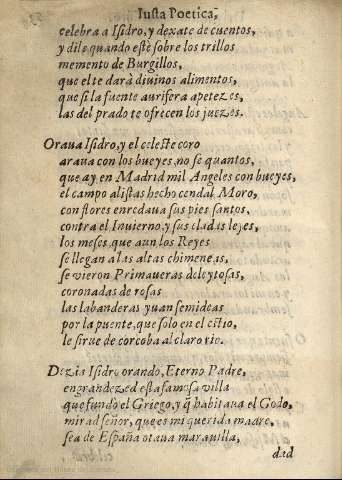 Iusta Poetica,
celebra a Isidro, y dexate de cuentos,
y dile quando estè sobre los trillos
memento de Burgillos,
que el te darà diuinos alimentos,
que si la fuente aurifera apetezes,
las del prado te ofrecen los juezes.
Oraua Isidro, y el celeste coro
araua con los bueyes, no se quantos,
que ay en Madrid mil Angeles con bueyes,
el campo a listas hecho cendal Moro,
con flores enredaua sus pies santos,
contra el Inuierno, y sus eladas leyes,
los meses, que aun los Reyes
se llegan a las altas chimeneas,
se vieron Primaueras deleytosas,
coronadas de rosas
las labanderas yuan semideas
por la puente, que solo en el estio,
le sirue de corcoba al claro rio.
Dezia Isidro orando, Eterno Padre,
engrandezed esta famosa villa
que fundó el Griego, y q̃ habitaua el Godo,
mirad señor, que es mi querida madre,
sea de España otaua marauilla,
dad